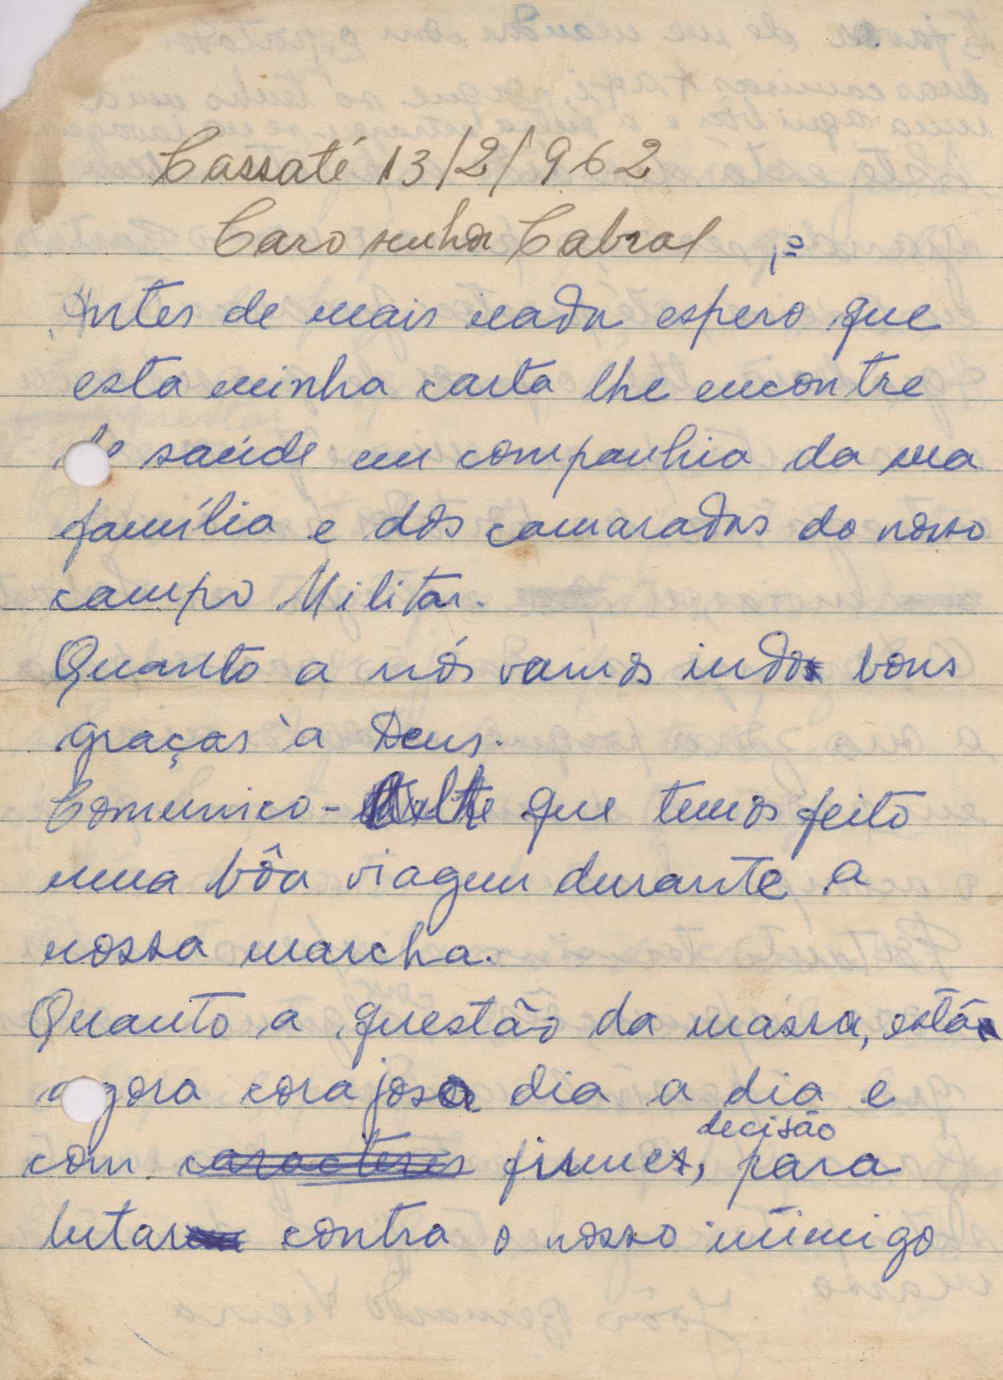 Cassaté 13/2/962
Caro senhor Cabral,=
Antes de mais nada espero que
esta minha carta lhe encontre
de saúde em companhia da sua
família e dos camaradas do nosso
campo Militar.
Quanto a nós vamos indo bons
graças à Deus.
Comunico-lhe que temos feito
uma bôa viagem durante a
nossa marcha.
Quanto a questão da massa, está
agora corajosa dia a dia e
decisão
com caracteres firmes, para
lutar contra o nosso inimigo